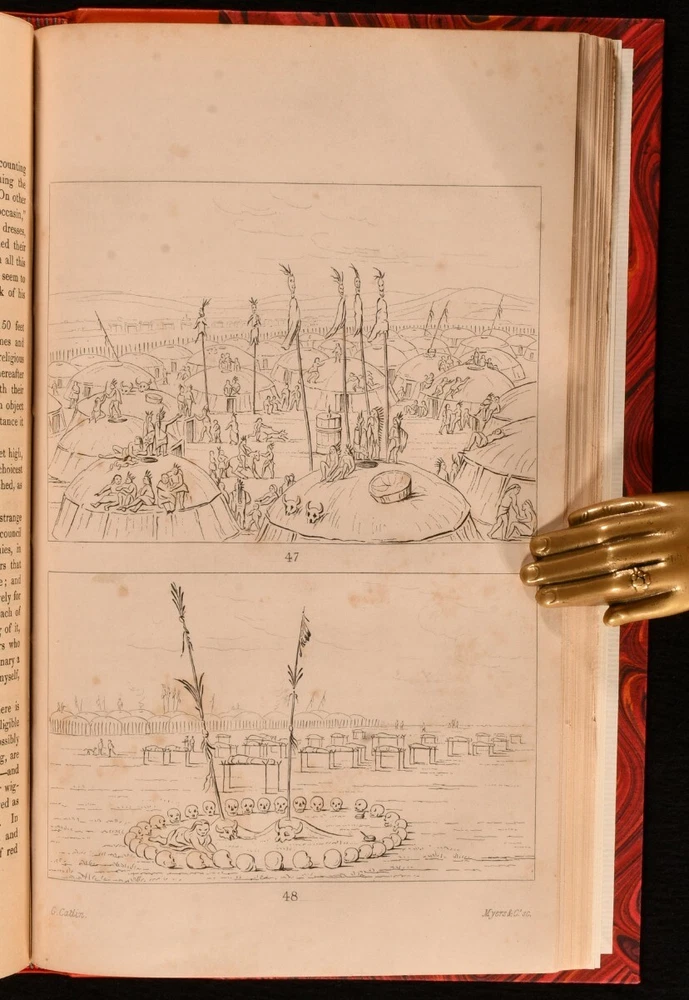 counting
ning the
On other
occasin,"
dresses,
ed their
all this
seem to
k of his
50 feet
nes and
religious
hereafter
th their
object
tance it
et high,
choicest
hed, as
strange
council
nies, is
rs that
e; and
ely for
ach of
g of it,
rs who
nary a
nyself,
ere is
ligible
ossibly
g, are
—and
wig-
ed as
In
and
f red
47
48
G. Catlin.
Myers & Co. sc.